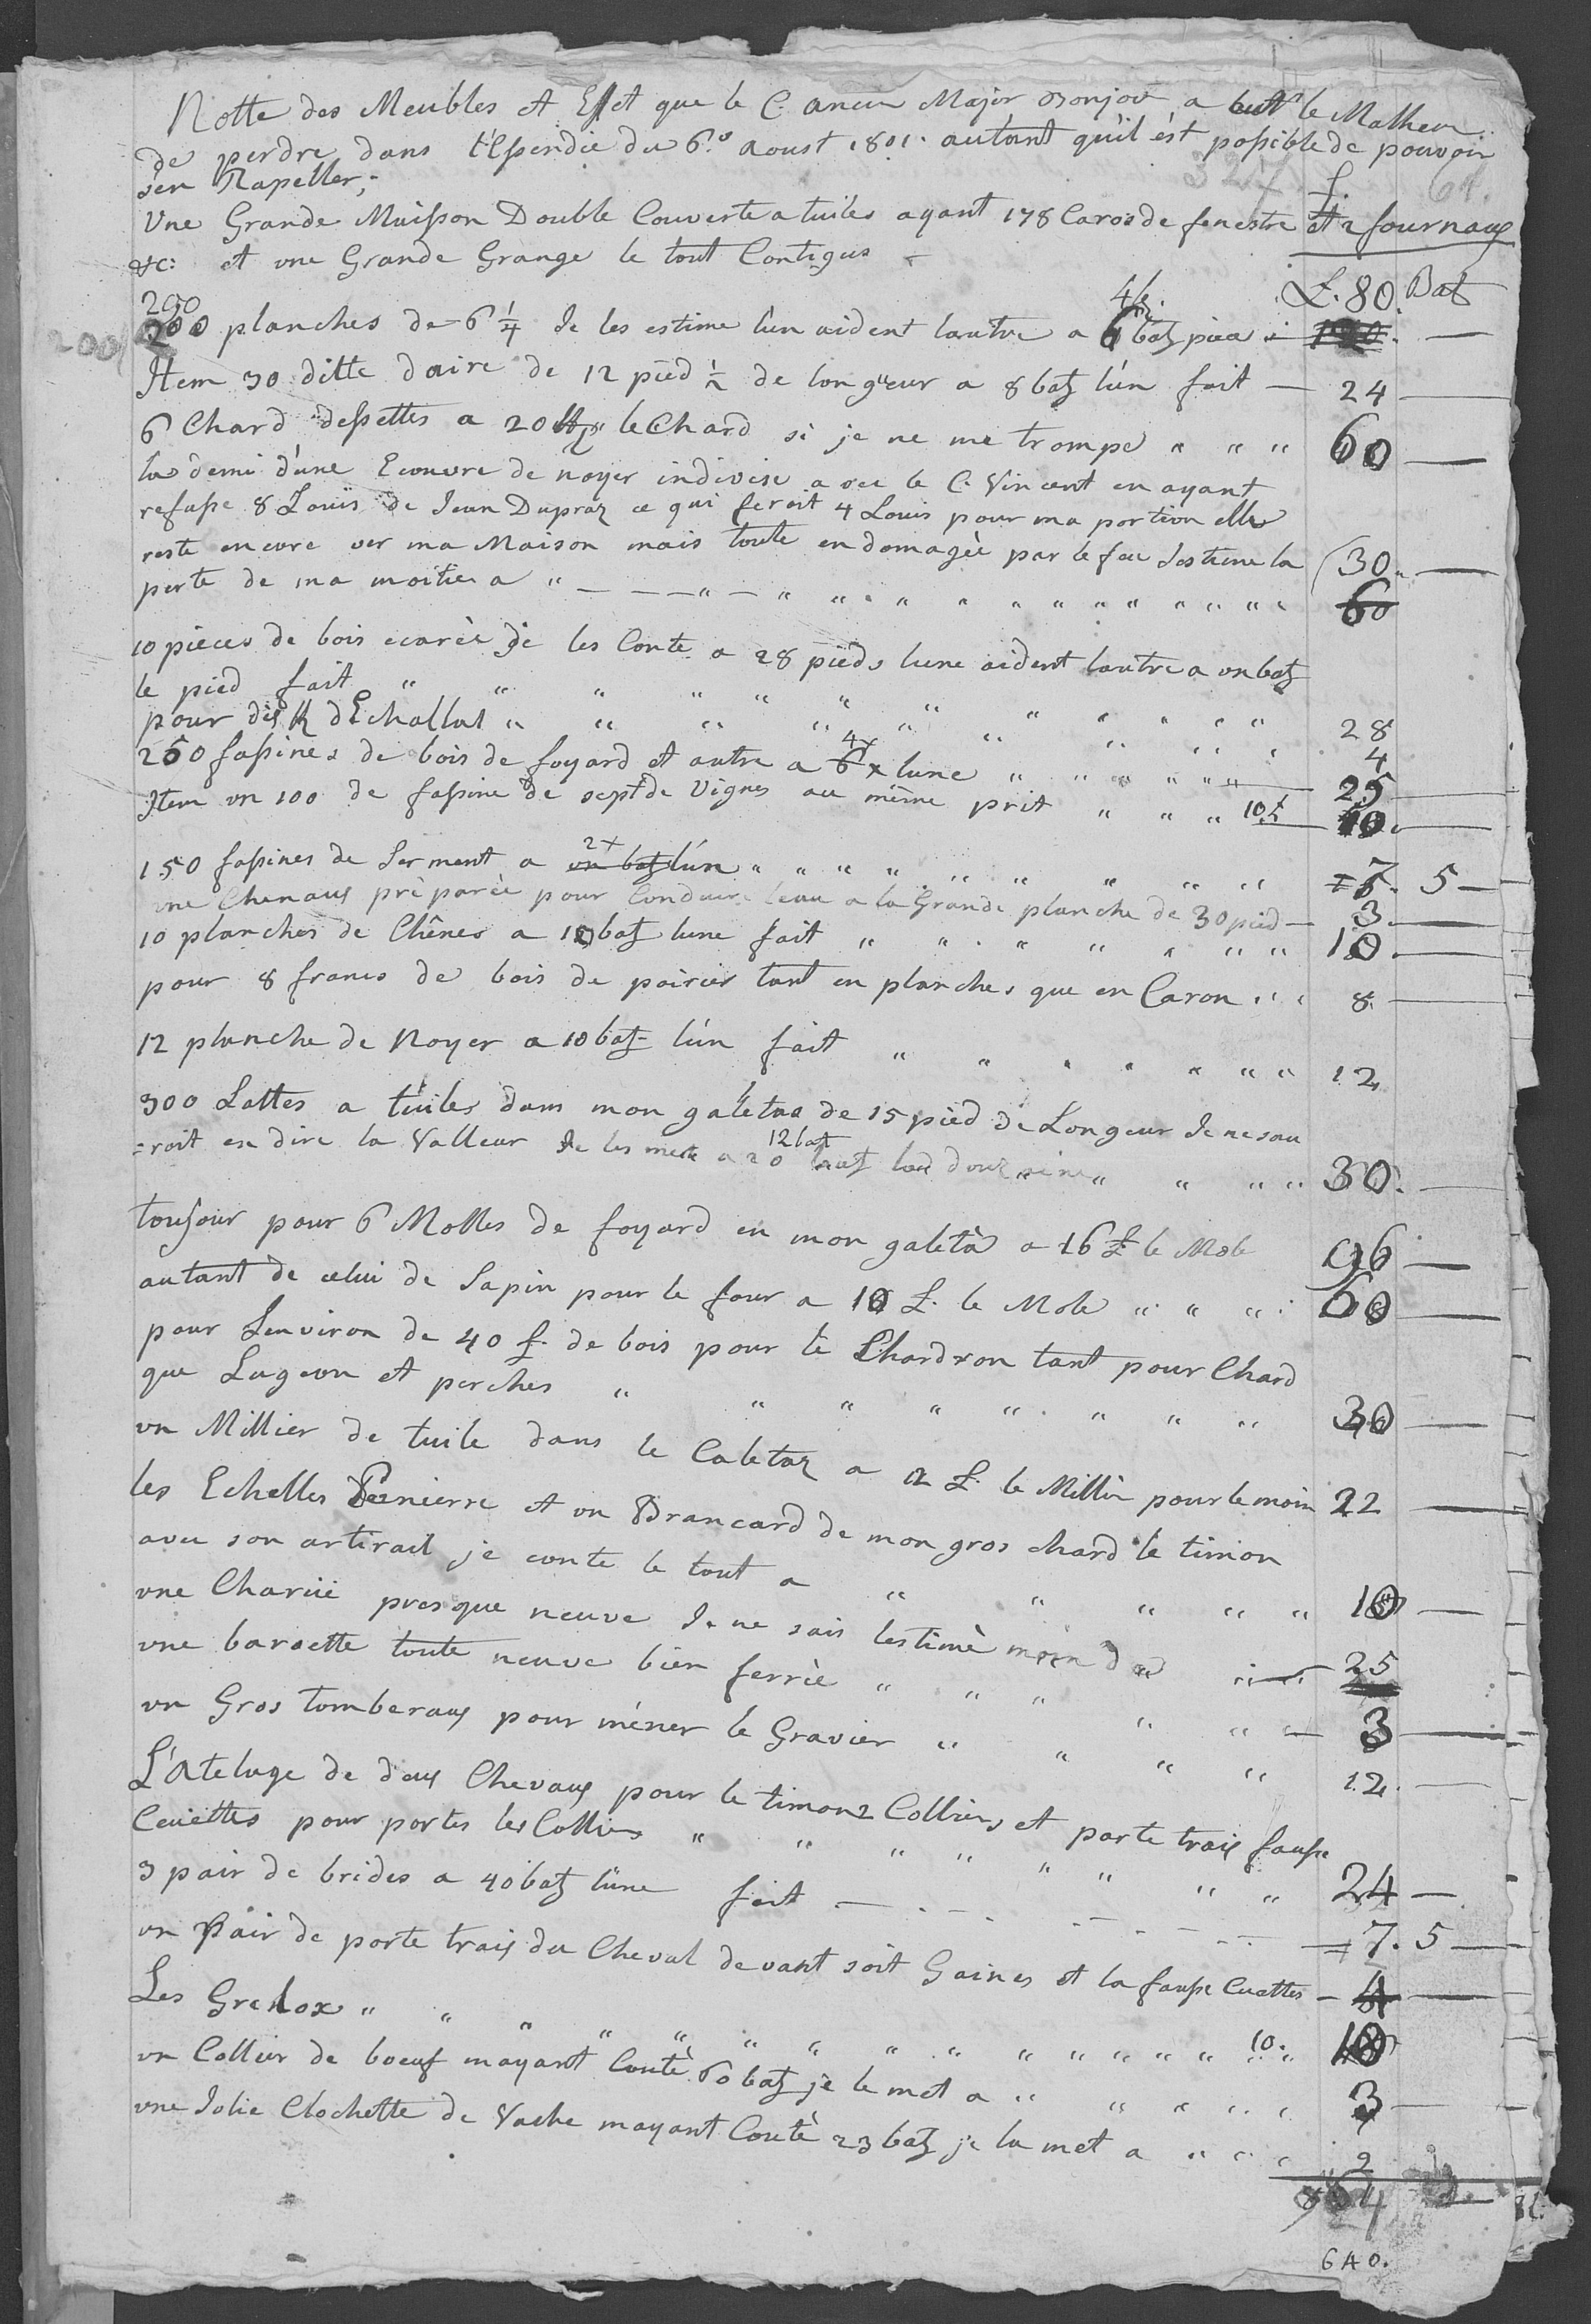 Notte des Meubles et Effet que le C. ancien Major Bonjour a eut le Malheur
de perdre dans l'Essendie du 6.e aoust 1801. autant qu'il est possible de pouvoir
sen Rapeller;
Une Grande Maisson Double Couverte a tuiles ayant 178 Caros de fenestre et 2 fournaux
&c: et une Grande Grange le tout Contigus
£. 80. Bat
200 planches de 6 1/4 Je les estime l'un aident lautre a 4 batz piece
Item 30 ditte daire de 12 pied 1/2 de longueur a 8 batz l'un fait — 24
6 Chard dessettes a 20 le Chard si je ne me trompe " " " 60
la demi d'une Ecouvre de noyer indivise avec le C. Vincent en ayant
refusse 8 Louis de Jean Dupraz ce qui feroit 4 Louis pour ma portion elle
reste encore ver ma Maison mais toute endomagèe par le feu Jestime la
perte de ma moitiee a " 30.
60
10 pieces de bois ecarèe je les Conte a 28 pieds lune aident lautre a un batz
le pied fait " " " 28
pour dix d'Echallat " " " 4
250 fassines de bois de foyard et autre a 4x lune " " " 25
Item un 100 de fassine de sept de Vignes au même prit " " " 10 £ 10.
150 fassines de Serment a 2x un batz l'un " " " 7. 5
une Chenaux prèparèe pour Conduire leau a la Grande planche de 30 pied — 3.
10 planches de Chênes a 10 batz lune fait " " " 10.
pour 8 francs de bois de poirier tant en planches que en Caron " " 8
12 planche de Noyer a 10 batz l'un fait " " " 12
300 Lattes a tuiles dans mon galetas de 15 pied de Longeur Je ne sau
=roit en dire la Valleur Je les mets a 20 batz 12 batz la douzaine " " " 30.
toujour pour 6 Molles de foyard en mon galetà a 16 £ le Mole 96
autant de celui de Sapin pour le four a 10 £. le Mole " " " 60
pour Lenviron de 40 f. de bois pour le Chardron tant pour Chard
que Lugeon et perches " " " 30
un Millier de tuile dans le Caletaz a £. le Millier pour le moin 22
les Echelles Dernierre et un Brancard de mon gros chard le timon
avec son artirail je conte le tout a " " " 10
une Charüe presque neuve Je ne sais lestimè moin de 25
une baroette toute neuve bien ferrèe " " " 3
un Gros tomberaux pour mèner le Gravier " " " 12.
L'Atelage de deux Chevaux pour le timon 2 Colliers et porte traix fausse
Ceuiettes pour porter les Colliers " " " 24
3 pair de brides a 40 batz l'une fait — 7. 5
un Pair de porte traix du Cheval devant soit Gaines et la fausse Cuettes — 4
Les Grelox " " " 10. 10
un Collier de boeuf mayant Coutè 60 batz je le met a " " 3
une Jolie Clochette de Vache mayant Coutè 23 batz je la met a " " 2
640.